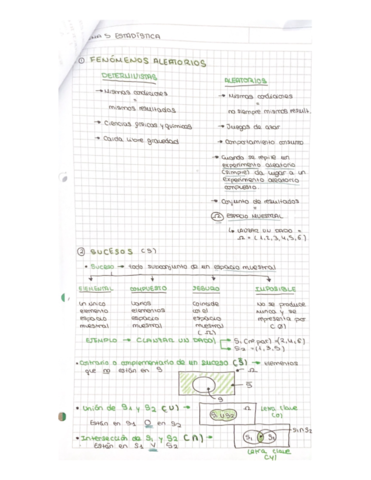 ESTADÍSTICA
① FENÓMENOS ALEATORIOS
DETERMINISTAS
→ Mismas condiciones
=
mismos resultados
→ Ciencias físicas y químicas
→ Caída libre gravedad
ALEATORIOS
→ Mismas condiciones
≠
no siempre mismos result.
→ Juegos de azar
→ Comportamiento
→ Cuando se repite en
experimento aleatorio
(simple) da lugar a un
experimento aleatorio
compuesto
→ Conjunto de resultados
=
Ω ESPACIO MUESTRAL
↳ LANZAR UN DADO =
Ω = {1, 2, 3, 4, 5, 6}
② SUCESOS (S)
• Suceso → todo subconjunto de un espacio muestral
ELEMENTAL
un único
elemento
espacio
muestral
COMPUESTO
varios
elementos
espacio
muestral
SEGURO
Coincide
con el
espacio
muestral
(Ω)
IMPOSIBLE
No se produce
nunca y se
representa por
(Ø)
EJEMPLO → (LANZAR UN DADO)
→ S₁ (nº par) = {2, 4, 6}
→ S₂ = {1, 3, 5}
• Contrario o complementario de un suceso (S̄) → elementos
que no están en S
Ω
S̄
S
• Unión de S₁ y S₂ (U)
→
S₁ U S₂
Letra clave
(O)
Están en S₁ O en S₂
• Intersección de S₁ y S₂ (∩)
→
S₁
S₂
S₁ ∩ S₂
Están en S₁ Y S₂
Letra clave
(Y)